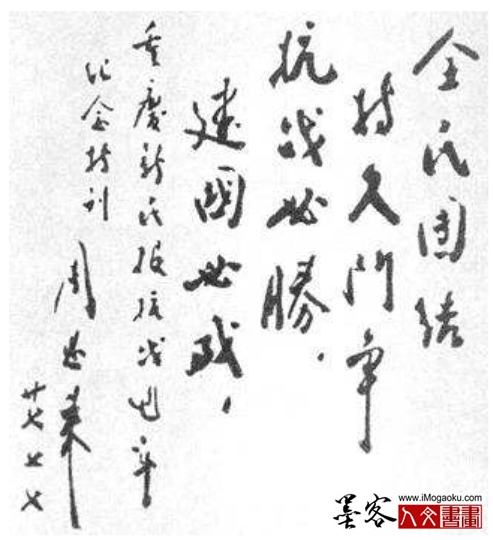 全民團结
持久鬥争
抗战必勝．
建國必成，
重慶新民报抗战週年
纪念特刊
周恩来
廿七、七、七
墨客
www.iMogaoku.com
人文書畫